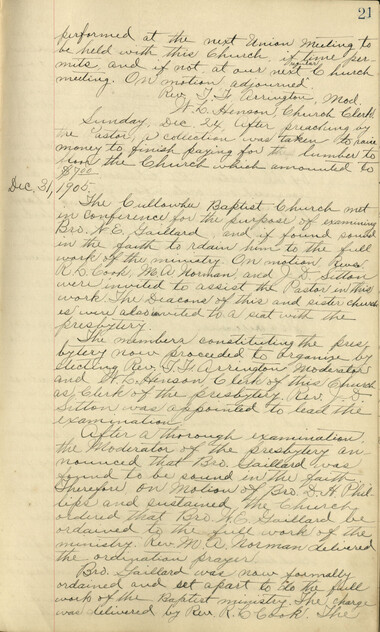 21
performed at the next Union Meeting to
be held with this Church, if time per-
mits, and if not, at our next regular Church
meeting. On motion adjourned.
Rev. T. F. Arrington, Mod.
W. L. Henson, Church Clerk
Sunday, Dec. 24. After preaching by
the Pastor, a collection was taken to raise
money to finish paying for the lumber to
the Church which amounted to
$9.00
Dec, 31, 1905.
The Cullowhee Baptist Church met
in conference for the purpose of examining
Bro. N. C. Gaillard and if found sound
in the faith to rdain him to the full
work of the ministry. On motion Revs
R. L. Cook, M. A. Norman, and J. D. Sitton
were invited to assist the Pastor in this
work. The Deacons of this and sister church
es were also invited to a seat with the
presbytery.
The members constituting the pres-
bytery now proceded to organize by
electing Rev. T. F. Arrington Moderator
and W. L. Henson Clerk of this Church
as Clerk of the presbytery. Rev. J. D.
Sitton was appointed to lead the
examination.
After a thorough examination
the Moderator of the presbytery an-
nounced that Bro. Gaillard was
found to be sound in the faith
Therefore on motion of Bro. D. H. Phil-
lips and sustained, the Church
ordered that Bro. N. C. Gaillard be
ordained to the full work of the
ministry. Rev. M. A. Norman delivered
the ordination prayer.
Bro. Gaillard was now formally
ordained and set apart to to the full
work of the Baptist ministry. The charge
was delivered by Rev. R. L. Cook. The